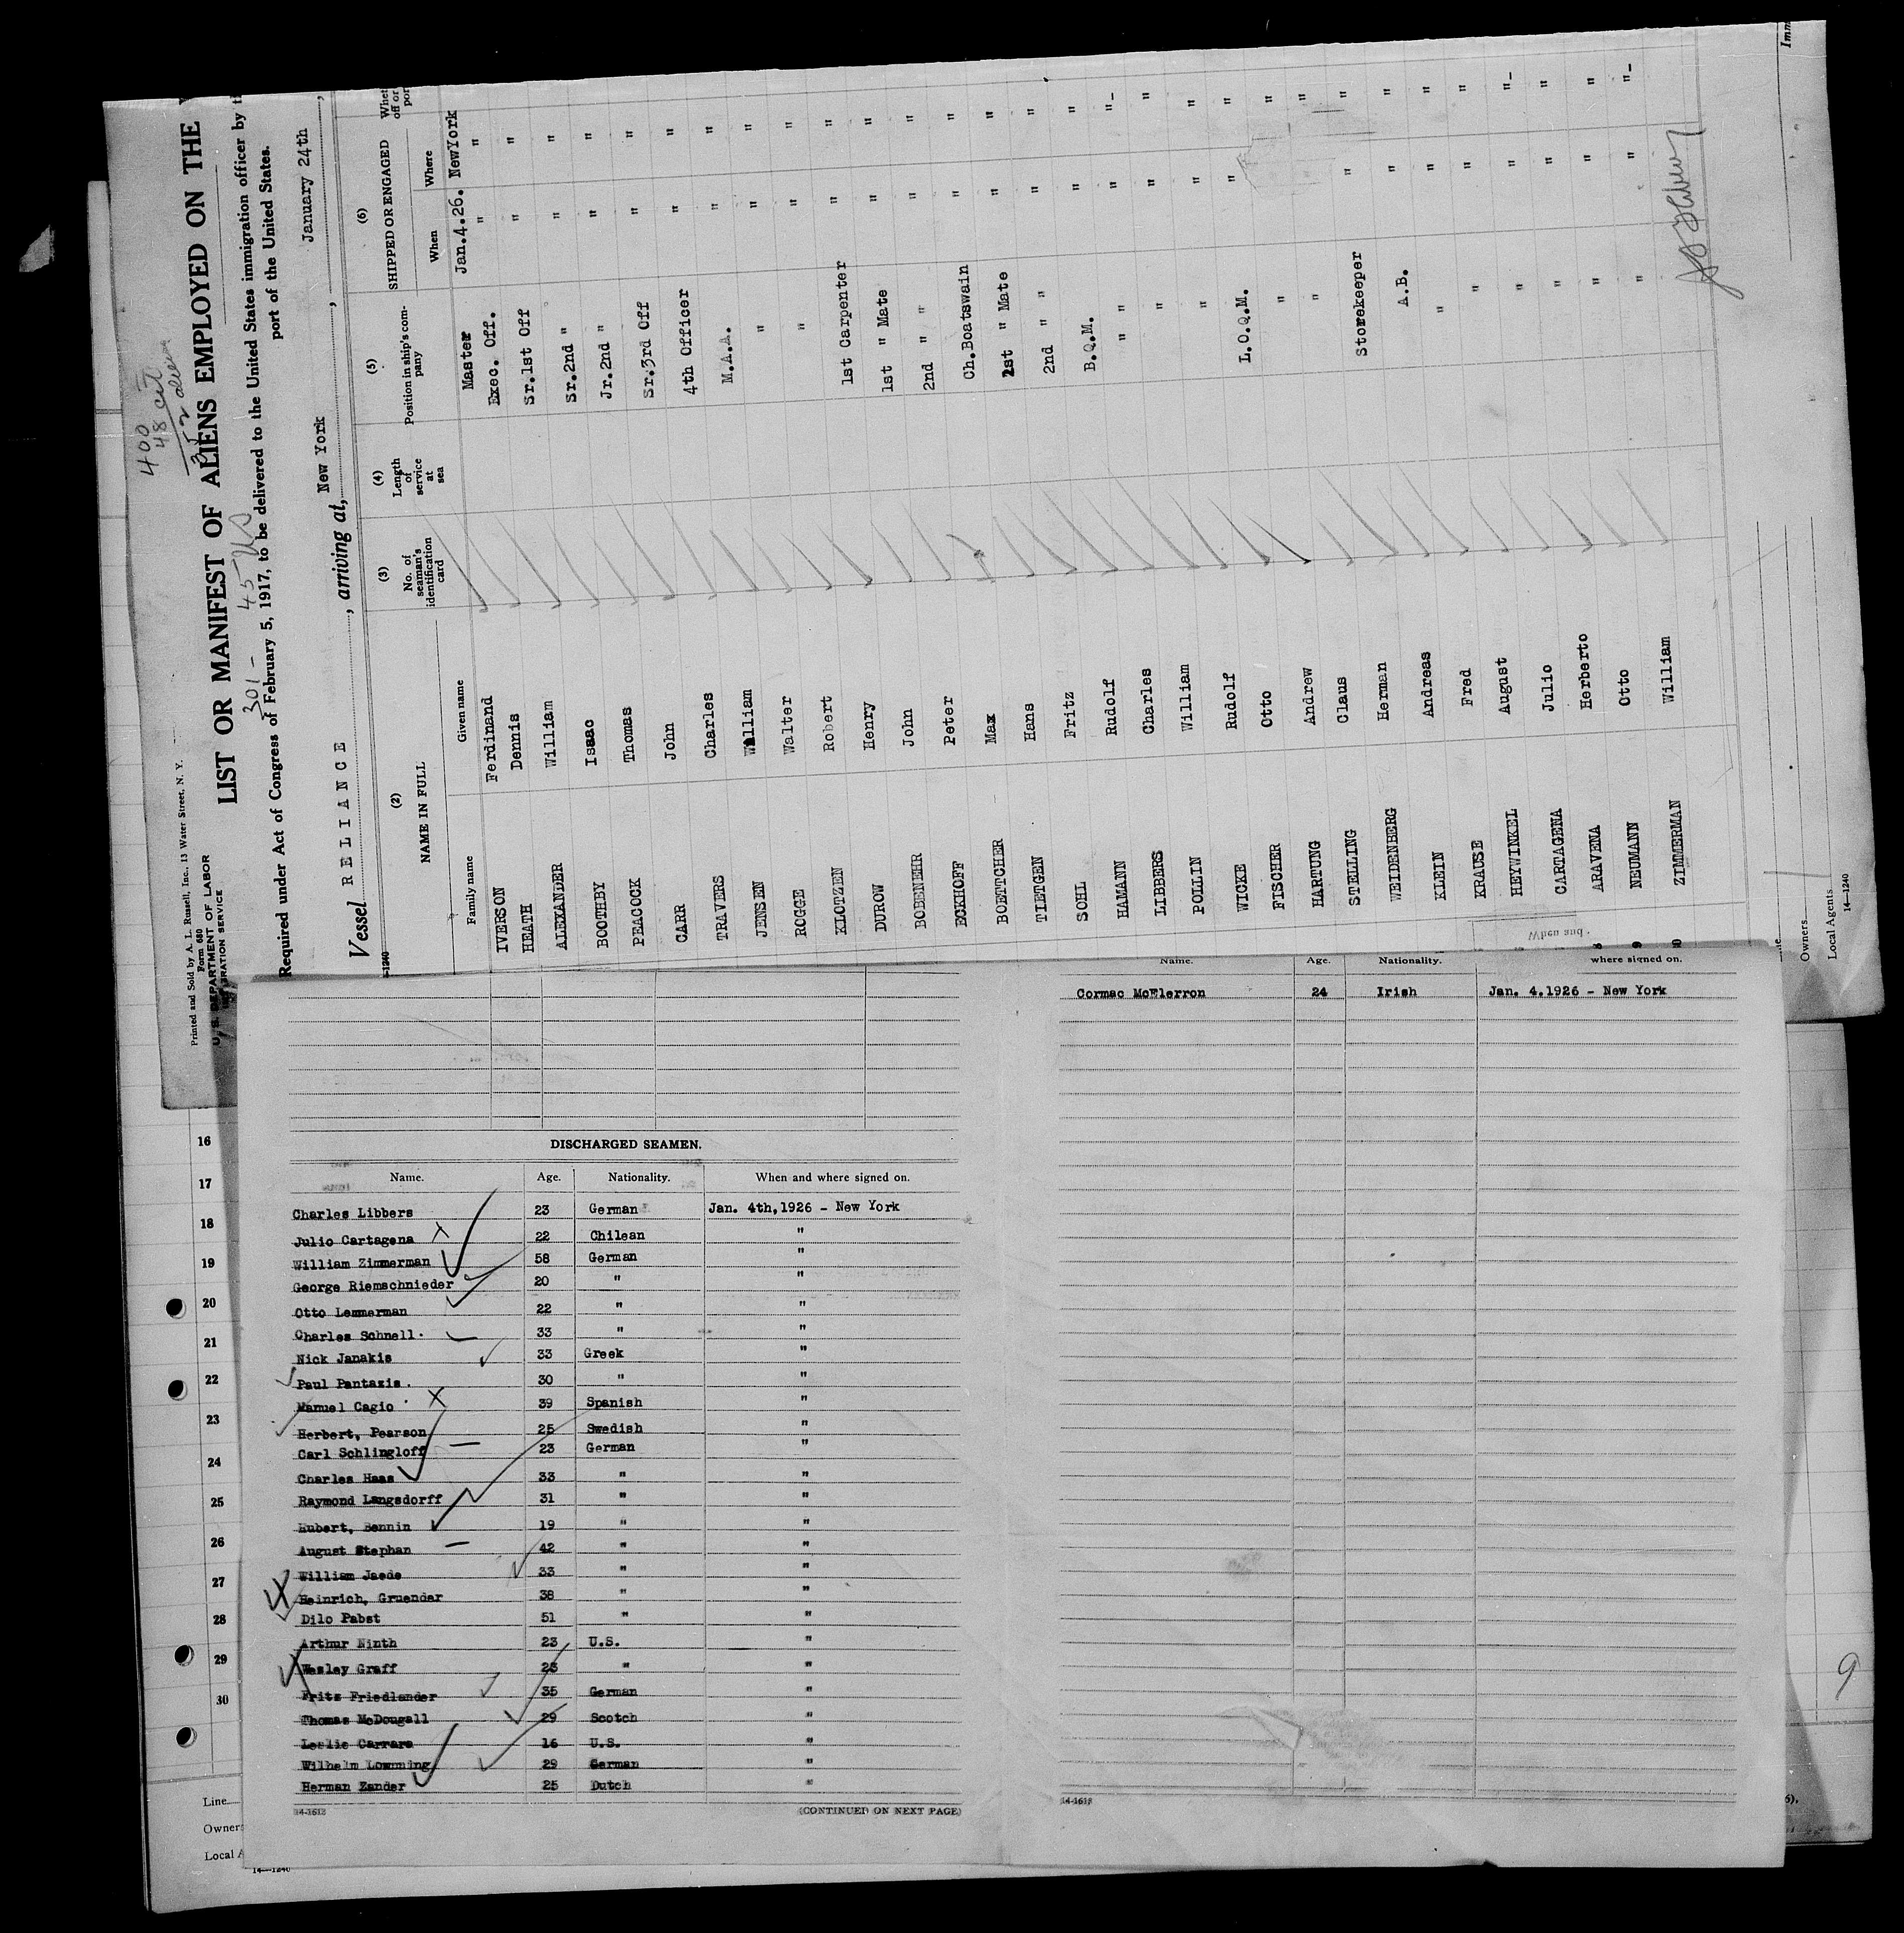 400
48 cit
352 alien
301 - 45 US
Printed and Sold by A. L. Russell, Inc., 13 Water Street, N. Y.
Form 680
U. S. DEPARTMENT OF LABOR
IMMIGRATION SERVICE
LIST OR MANIFEST OF ALIENS EMPLOYED ON THE
Required under Act of Congress of February 5, 1917, to be delivered to the United States immigration officer by
port of the United States.
Vessel RELIANCE, arriving at, New York, January 24th,
(2) NAME IN FULL (3) No. of seaman's identification card (4) Length of service at sea (5) Position in ship's company (6) SHIPPED OR ENGAGED
Family name Given name When Where
IVERSON Ferdinand Master Jan.4.26. NewYork
HEATH Dennis Exec. Off. " " "
ALEXANDER William Sr.1st Off " " "
BOOTHBY Isaac Sr.2nd " " " "
PEACOCK Thomas Jr.2nd " " " "
CARR John Sr.3rd Off " " "
TRAVERS Charles 4th Officer " " "
JENSEN William M.A.A. " " "
ROGGE Walter " " " "
KLOTZEN Robert " " " "
DUROW Henry 1st Carpenter " " "
BOBENEHR John 1st " Mate " " "
ECKHOFF Peter 2nd " " " " "
BOETTCHER Max Ch.Boatswain " " "
TIETGEN Hans 1st " Mate " " "
SOHL Fritz 2nd " " " " "
HAMANN Rudolf B.Q.M. " " "-
LIBBERS Charles " " " " "
POLLIN William " " " "
WICKE Rudolf " " " "
FISCHER Otto L.O.Q.M. " "
HARTUNG Andrew " "
STELLING Claus " " "
WEIDENBERG Herman Storekeeper " "
KLEIN Andreas A.B. " "
KRAUSE Fred " " "
HEYWINKEL August " " "-
CARTAGENA Julio " " "
ARAVENA Herberto " " "
NEUMANN Otto " " "-
ZIMMERMAN William "
Owners
Local Agents
14—1240
16
17
18
19
20
21
22
23
24
25
26
27
28
29
30
Line
Owners
Local A
14—1240
DISCHARGED SEAMEN.
Name. Age. Nationality. When and where signed on.
Charles Libbers 23 German Jan. 4th,1926 - New York
Julio Cartagena 22 Chilean "
William Zimmerman 58 German "
George Riemschnieder 20 " "
Otto Lemmerman 22 " "
Charles Schnell. 33 " "
Nick Janakis 33 Greek "
Paul Pantazis. 30 " "
Manuel Cagio 39 Spanish "
Herbert, Pearson 25 Swedish "
Carl Schlingloff 23 German "
Charles Haas 33 " "
Raymond Langsdorff 31 " "
Hubert, Bennin 19 " "
August Stephan 42 " "
William Jaede 33 " "
Heinrich, Gruendar 38 " "
Dilo Pabst 51 " "
Arthur Ninth 23 U.S. "
Wesley Graff 23 " "
Fritz Friedlander 35 German "
Thomas McDougall 29 Scotch "
Leslie Carrara 16 U.S. "
Wilhelm 29 German "
Herman Zander 25 Dutch "
14-1613 (CONTINUED ON NEXT PAGE)
Name. Age. Nationality. where signed on.
Cormac McElerron 24 Irish Jan. 4.1926 - New York
14-1613
9